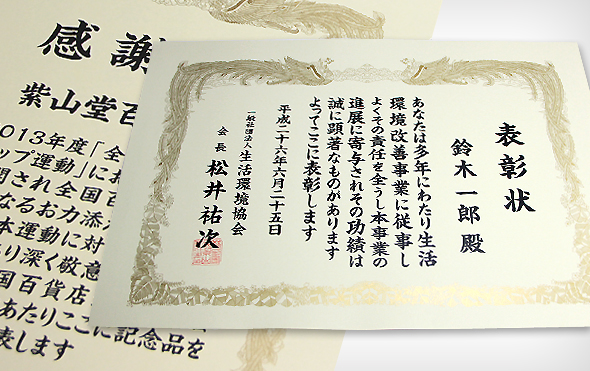 表彰状
鈴木一郎殿
あなたは多年にわたり生活
環境改善事業に従事し
よくその責任を全うし本事業の
進展に寄与されその功績は
誠に顕著なものがあります
よってここに表彰します
平成二十六年六月二十五日
一般社団法人生活環境協会
会長 松井祐次
感謝
紫山堂百
013年度「全
ップ運動」にお
開され全国百
なるお力添
本運動に対
り深く敬意
国百貨店
あたりここに記念品を
表します